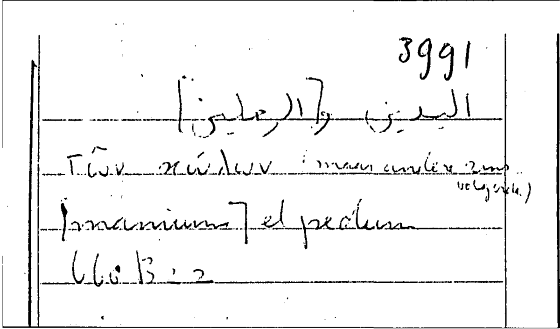 3991
اليدين و[الرجلين]
τῶν κώλων (maar andere zins
volgorde)
[manuum] et pedum
660 B: 2